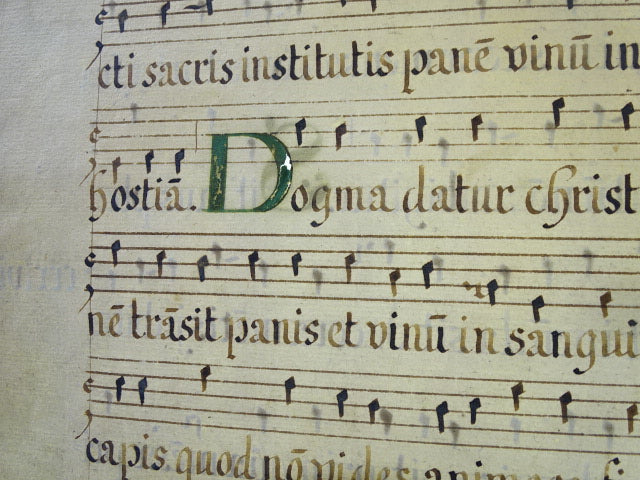 cti sacris institutis panē vinū in
hostiā. Dogma datur christ
nē trāsit panis et vinū in sangui
capis quod nō vides animosa fi